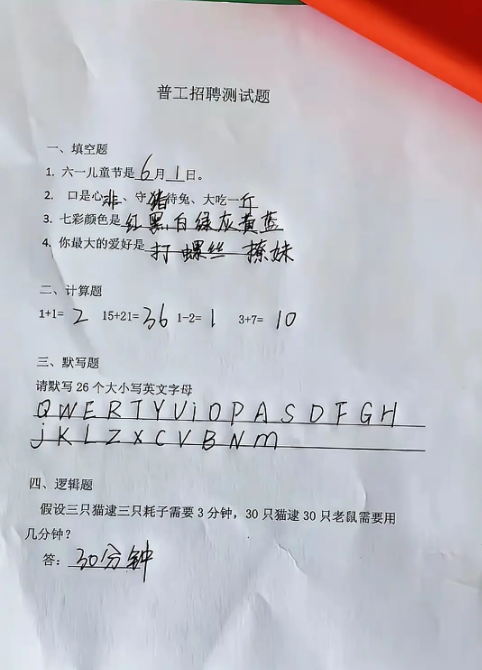 普工招聘测试题
一、填空题
1. 六一儿童节是6月1日。
2. 口是心非、守猪待兔、大吃一斤
3. 七彩颜色是红黑白绿灰黄蓝
4. 你最大的爱好是打螺丝 撩妹
二、计算题
1+1=2 15+21=36 1-2=1 3+7=10
三、默写题
请默写 26 个大小写英文字母
QWERTYUiOPASDFGH
jKLZXCVBNm
四、逻辑题
假设三只猫逮三只耗子需要 3 分钟，30 只猫逮 30 只老鼠需要用
几分钟？
答：30分钟